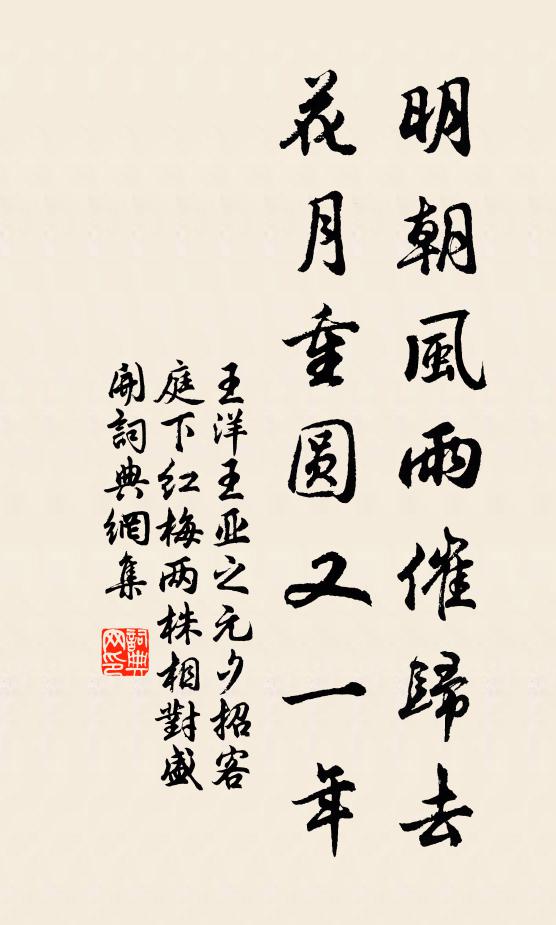 明朝風雨催歸去
花月重圓又一年
王洋王亚之元夕招客
庭下红梅两株相對盛
開詞典網集
詞典
网印